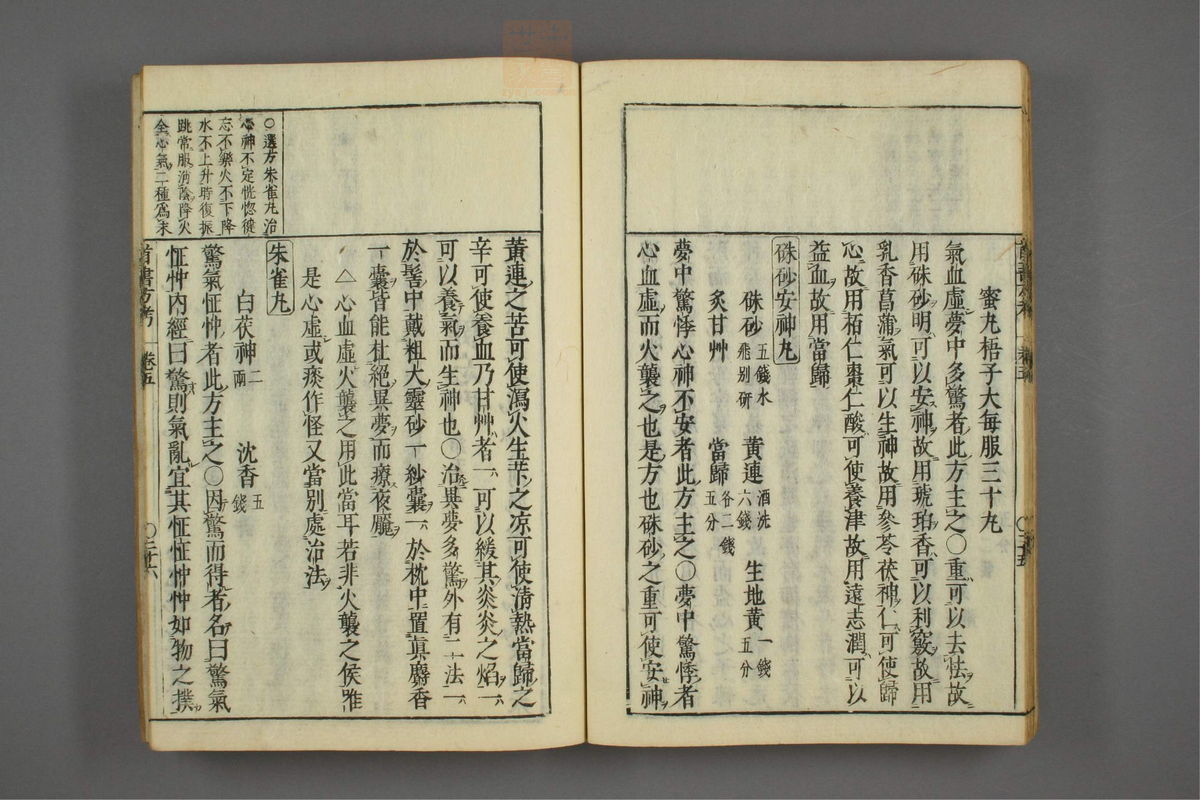 蜜丸梧子大每服三十丸
氣血虛夢中多驚者此方主之○重可以去怯故
用硃砂明可以安神故用琥珀香可以利竅故用
乳香菖蒲氣可以生神故用參苓茯神仁可使歸
心故用栢仁棗仁酸可使養津故用遠志潤可以
益血故用當歸
硃砂安神丸
硃砂五錢水飛別研 黃連酒洗六錢 生地黃一錢五分
炙甘艸 當歸各二錢五分
夢中驚悸心神不安者此方主之○夢中驚悸者
心血虛而火襲之也是方也硃砂之重可使安神
黃連之苦可使瀉火生苄之凉可使清熱當歸之
辛可使養血乃甘艸者一可以緩其炎炎之焰一
可以養氣而生神也○治異夢多驚外有二法一
於髻中戴粗大靈砂一紗囊一於枕中置真麝香
一囊皆能杜絕異夢而療夜魘
△心血虛火襲之用此當耳若非火襲之侯雖
是心虛或痰作怪又當別處治法
朱雀丸
白茯神二兩 沈香五錢
驚氣怔忡者此方主之○因驚而得者名曰驚氣
怔忡內經曰驚則氣亂宜其怔怔忡忡如物之撲
首書方考 卷五 ○二十六
○選方朱雀丸治
心神不定恍惚健
忘不樂火不下降
水不上升時復振
跳常服消陰降火
全心氣二種爲末